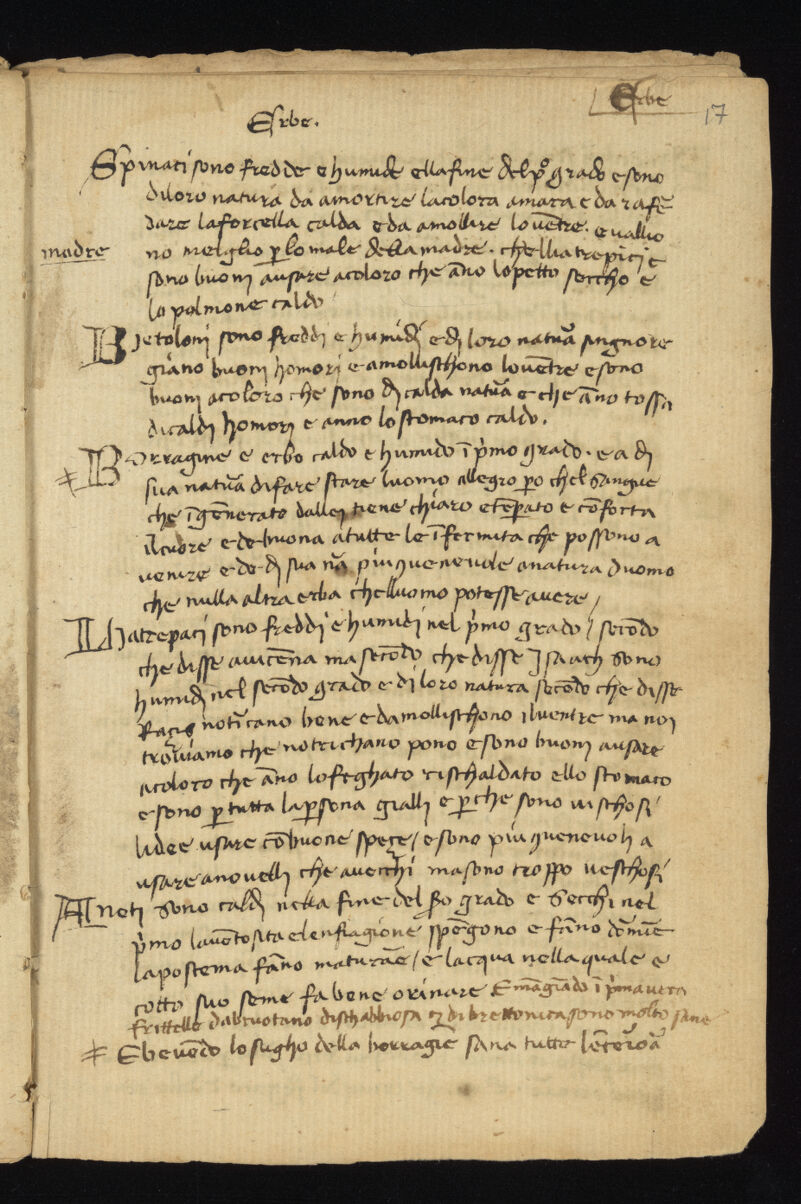 Erbe
17
Erbe.
Spinaci sono fredde e humide ella fine del pº grado e sono
di loro natura da amortire la colora amara e da rafrẽ
dare la forcella calda e da amollire lo vẽtre. e vallio
madre
no melglio p lo male della madre. che lli atrepici e
sono buonj ausare acoloro che ãno lo petto seccho e
lo polmone caldo
Bietoloni sono freddi e humidi e dj loro natuã singnore
giãno buonj homorj e amollischono lo vẽtre e sono
buonj acoloro che sono dj calda natuã e che ãno tossa
di caldj homorj e anno lo stomaco caldo.
Borragine e erbo caldo e humido ĩ pimo grado. e a dj
sua natuã di fare stare luomo allegro po chel sangue
che ĩgenerato dallej viene chiaro e tẽpato e cõforta
il cuore e de buona a tutte le ĩfermita che possono a
venire e de dj sua nã piu quenevole a natura duomo
che nulla altra erba chelluomo potesse avere /
Li atrepaci sono freddi e humidi nel pimo grado / secõdo
che disse avicẽna ma secõdo che disse Isaach sono
humidj nel secõdo grado e dj loro natura secõdo che disse
Racis notricano bene e damollischono il ventre ma noj
troviamo che notrichano pono e sono buonj ausare
acoloro che ãno lo feghato rischaldato ello stomaco
e sono p tutta la psona giallj e pche sono vischosi
lidee usare cõ buone speçe / e sono piu quenevolj a
usare anovellj che avecchi ma sono troppo veschosi
Aneti sono caldj nella fine del pº grado e secchi nel
pimo la vẽtosita el enfiagione spẽgono e fãno dõmiẽ
la postema fãno maturãe / e lacqua nella quale e
cotto suo seme fa bene orinare E mãgiãdo ĩ pimavera
frittelle dabruotano di schabbiosa e di brettonica sono molto sane
E bevẽdo lo sugho della borragie sana tutte